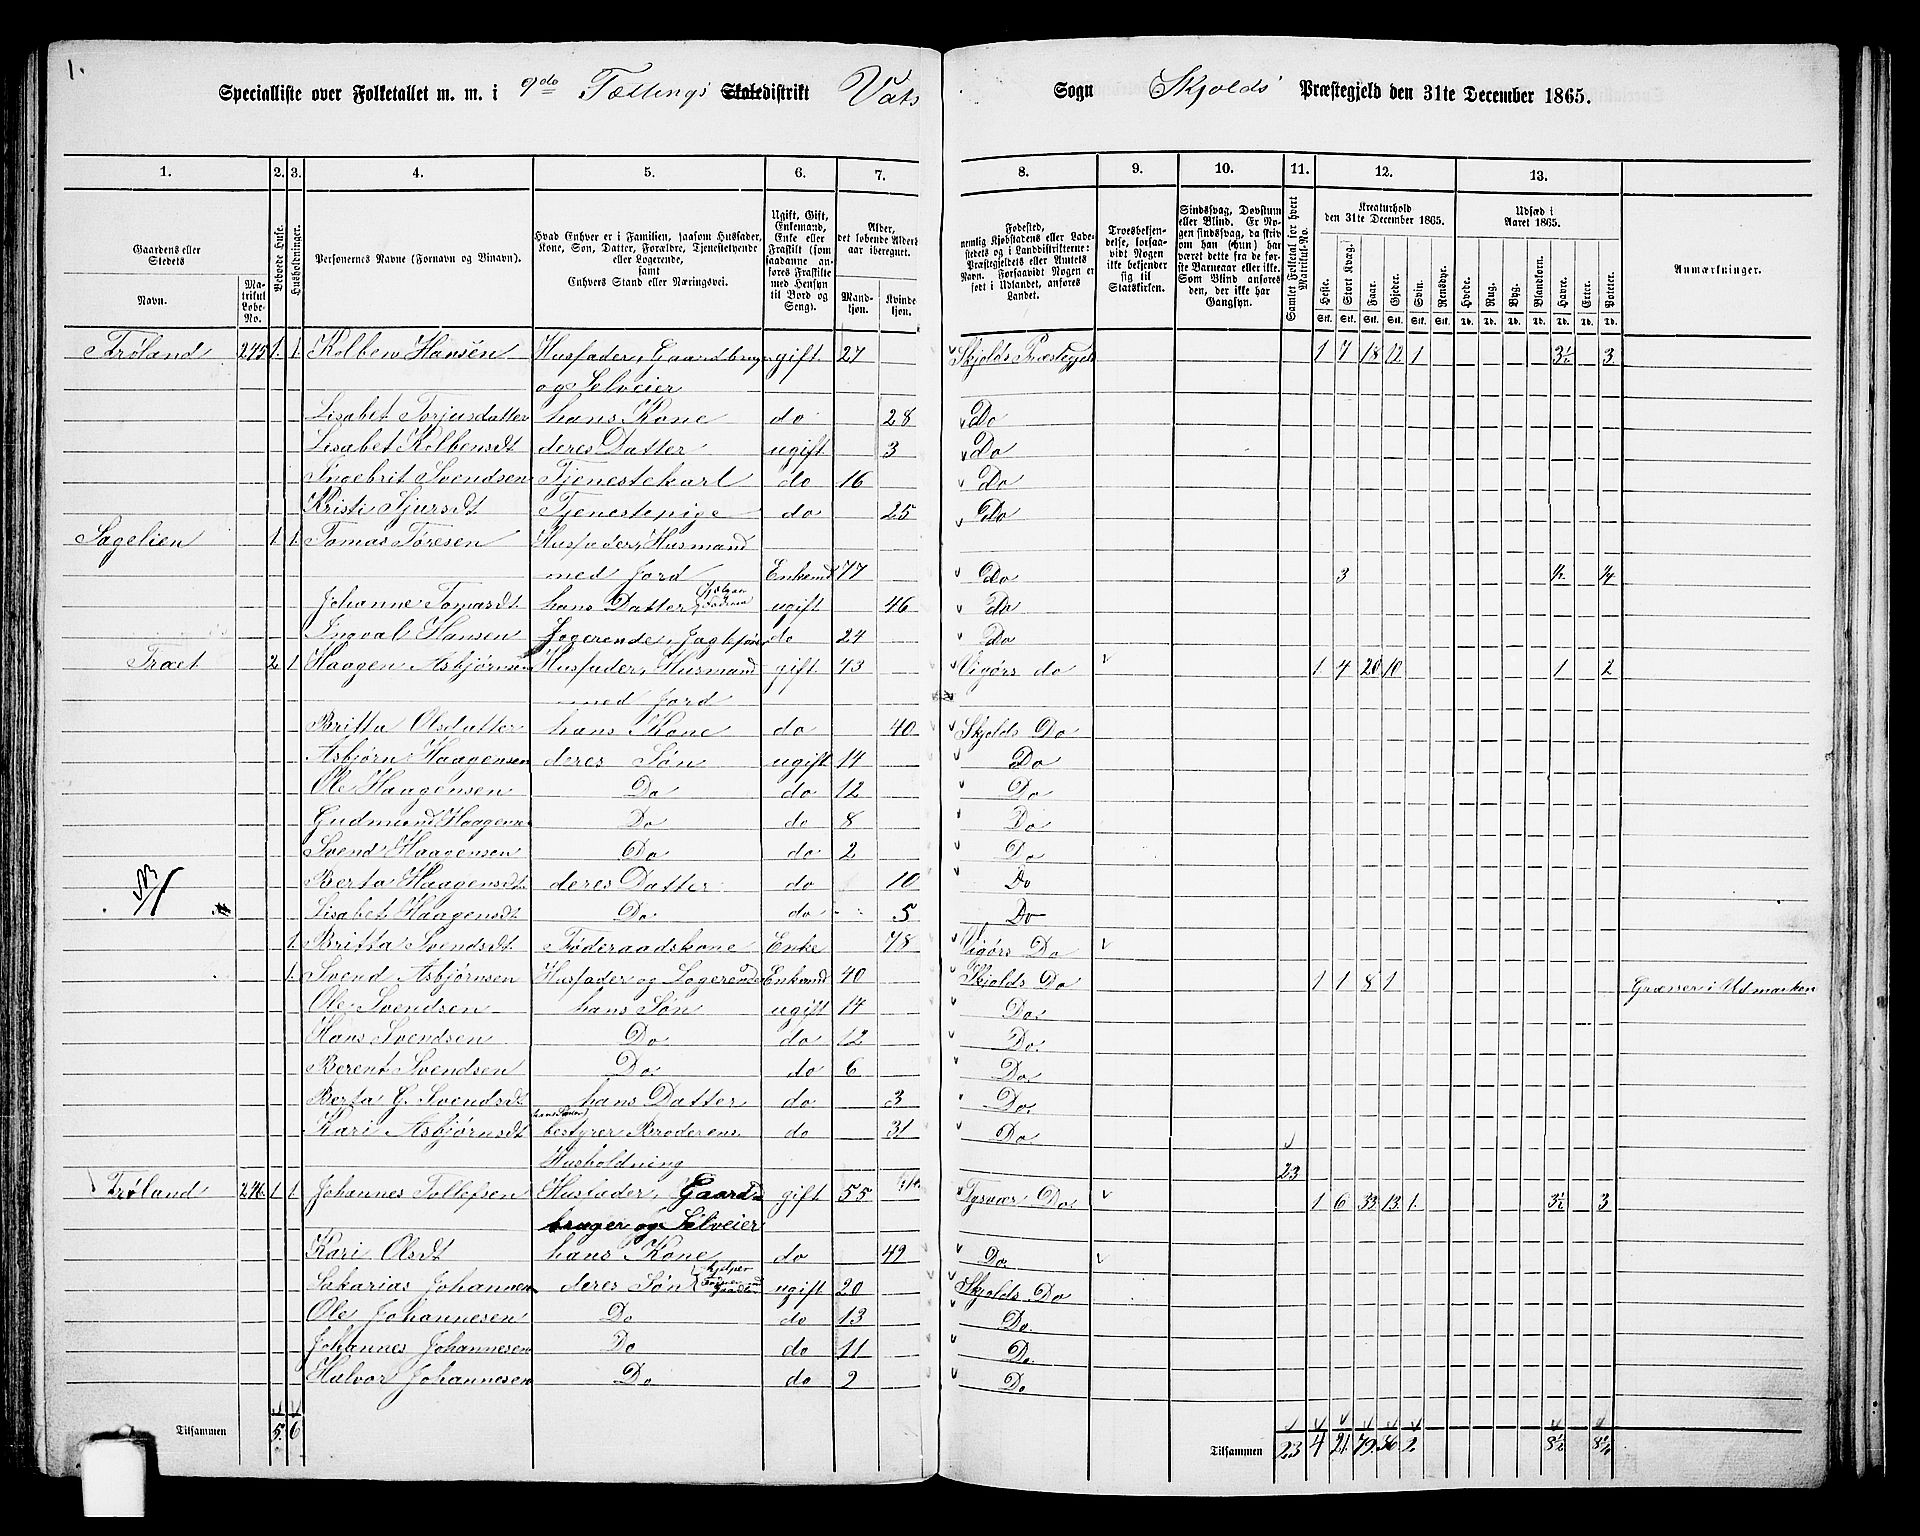 1.
Specialliste over Folketallet m. m. i 9de Tællings Skoledistrikt Vats Sogn Skjolds Præstegjeld den 31te December 1865.
1. 2. 3. 4. 5. 6. 7. 8. 9. 10. 11. 12. 13.
Gaardens eller Stedets
Navn.
Matrikul Løbe-No.
Bebyggede Huse.
Husholdninger.
Personernes Navne (Fornavn og Tilnavn).
Hvad Enhver er i Familien, saasom Husfader, Kone, Søn, Datter, Forældre, Tjenestetyende eller Logerende, samt Enhvers Stand eller Næringsvei.
Ugift, Gift, Enkemand, Enke eller Fraskilt (som saadanne anføres Fraskilte med Hensyn til Bord og Seng).
Alder, det løbende Alders-aar iberegnet.
Mandkjøn.
Kvindekjøn.
Fødested, nemlig Kjøbstadens eller Ladestedets og i Landdistrikterne: Præstegjeldets eller Amtets Navn. Forsaavidt Nogen er født i Udlandet, anføres Landet.
Troesbekjendelse, forsaavidt Nogen ikke bekjender sig til Statskirken.
Sindssvag, Døvstum eller Blind. Er Nogen sindssvag, da skrives om han (hun) har været dette fra de første Barneaar eller ikke. Som Blind anføres den, der ikke har Gangsyn.
Samlet Folketal for hvert Matrikul-No.
Kreaturhold den 31te December 1865.
Heste. Stort Kvæg. Faar. Gjeder. Svin. Rensdyr.
Udsæd i Aaret 1865.
Hvede. Rug. Byg. Blandkorn. Havre. Erter. Poteter.
Anmærkninger.
Frøland 245 1. 1. Kolben Hansen Husfader, Gaardbruger gift 27 Skjolds Præstegjeld 1 7 18 12 1 3½ 3.
og Selveier
Lisabet Torjusdatter hans Kone do 28 Do
Lisabet Kolbensdt deres Datter ugift 3 Do
Ingebrit Svendsen Tjenestekarl do 16 Do
Kristi Sjursdt Tjenestepige do 25 Do
Sagelien 1. 1. Tomas Toresen Husfader, Husmand
med Jord Enkemd 77 Do 3 ½ ¼
Johanne Tomasdt hans Datter, ugift 46 Do
Ingval Hansen Logerende, do 24 Do
Træet 2. 1. Haagen Asbjørnsen Husfader, Husmand gift 43 Vigørs do 1. 4 20 10 1 2
med Jord
Britta Olsdatter hans Kone do 40 Skjolds Do
Asbjørn Haagensen deres Søn ugift 14 Do
Ole Haagensen Do do 12 Do
Gudmund Haagensen Do do 8 Do
Svend Haagensen Do do 2 Do
Berta Haagensdt deres Datter do 10 Do
Lisabet Haagensdt Do do 5 Do
1. Britta Svendsdt Føderaadskone Enke 78 Vigørs Do
1. Svend Asbjørnsen Husfader og Logerende Enkemd 40 Skjolds Do 1 1 8 1 Græsser i Udmarken
Ole Svendsen hans Søn ugift 14 Do.
Hans Svendsen Do do 12 Do.
Berent Svendsen Do do 6 Do.
Berta G. Svendsdt hans Datter do 3 Do.
Kari Asbjørnsdt bestyrer Broderens do 31 Do
Husholdning 23
Frøland 246 1. 1. Johannes Tollefsen Husfader, Gaard- gift 55 Tysvær Do. 1 6 33 13 1. 3½ 3
bruger og Selveier
Kari Olsdt hans Kone do 49 Do.
Sakarias Johannesen deres Søn ugift 20 Skjolds Do
Ole Johannesen Do do 13 Do.
Johannes Johannesen Do do 11 Do.
Halvor Johannesen Do do 2 Do
Tilsammen 5. 6
Tilsammen 23 4 21. 79. 36. 2. 8½ 8¼